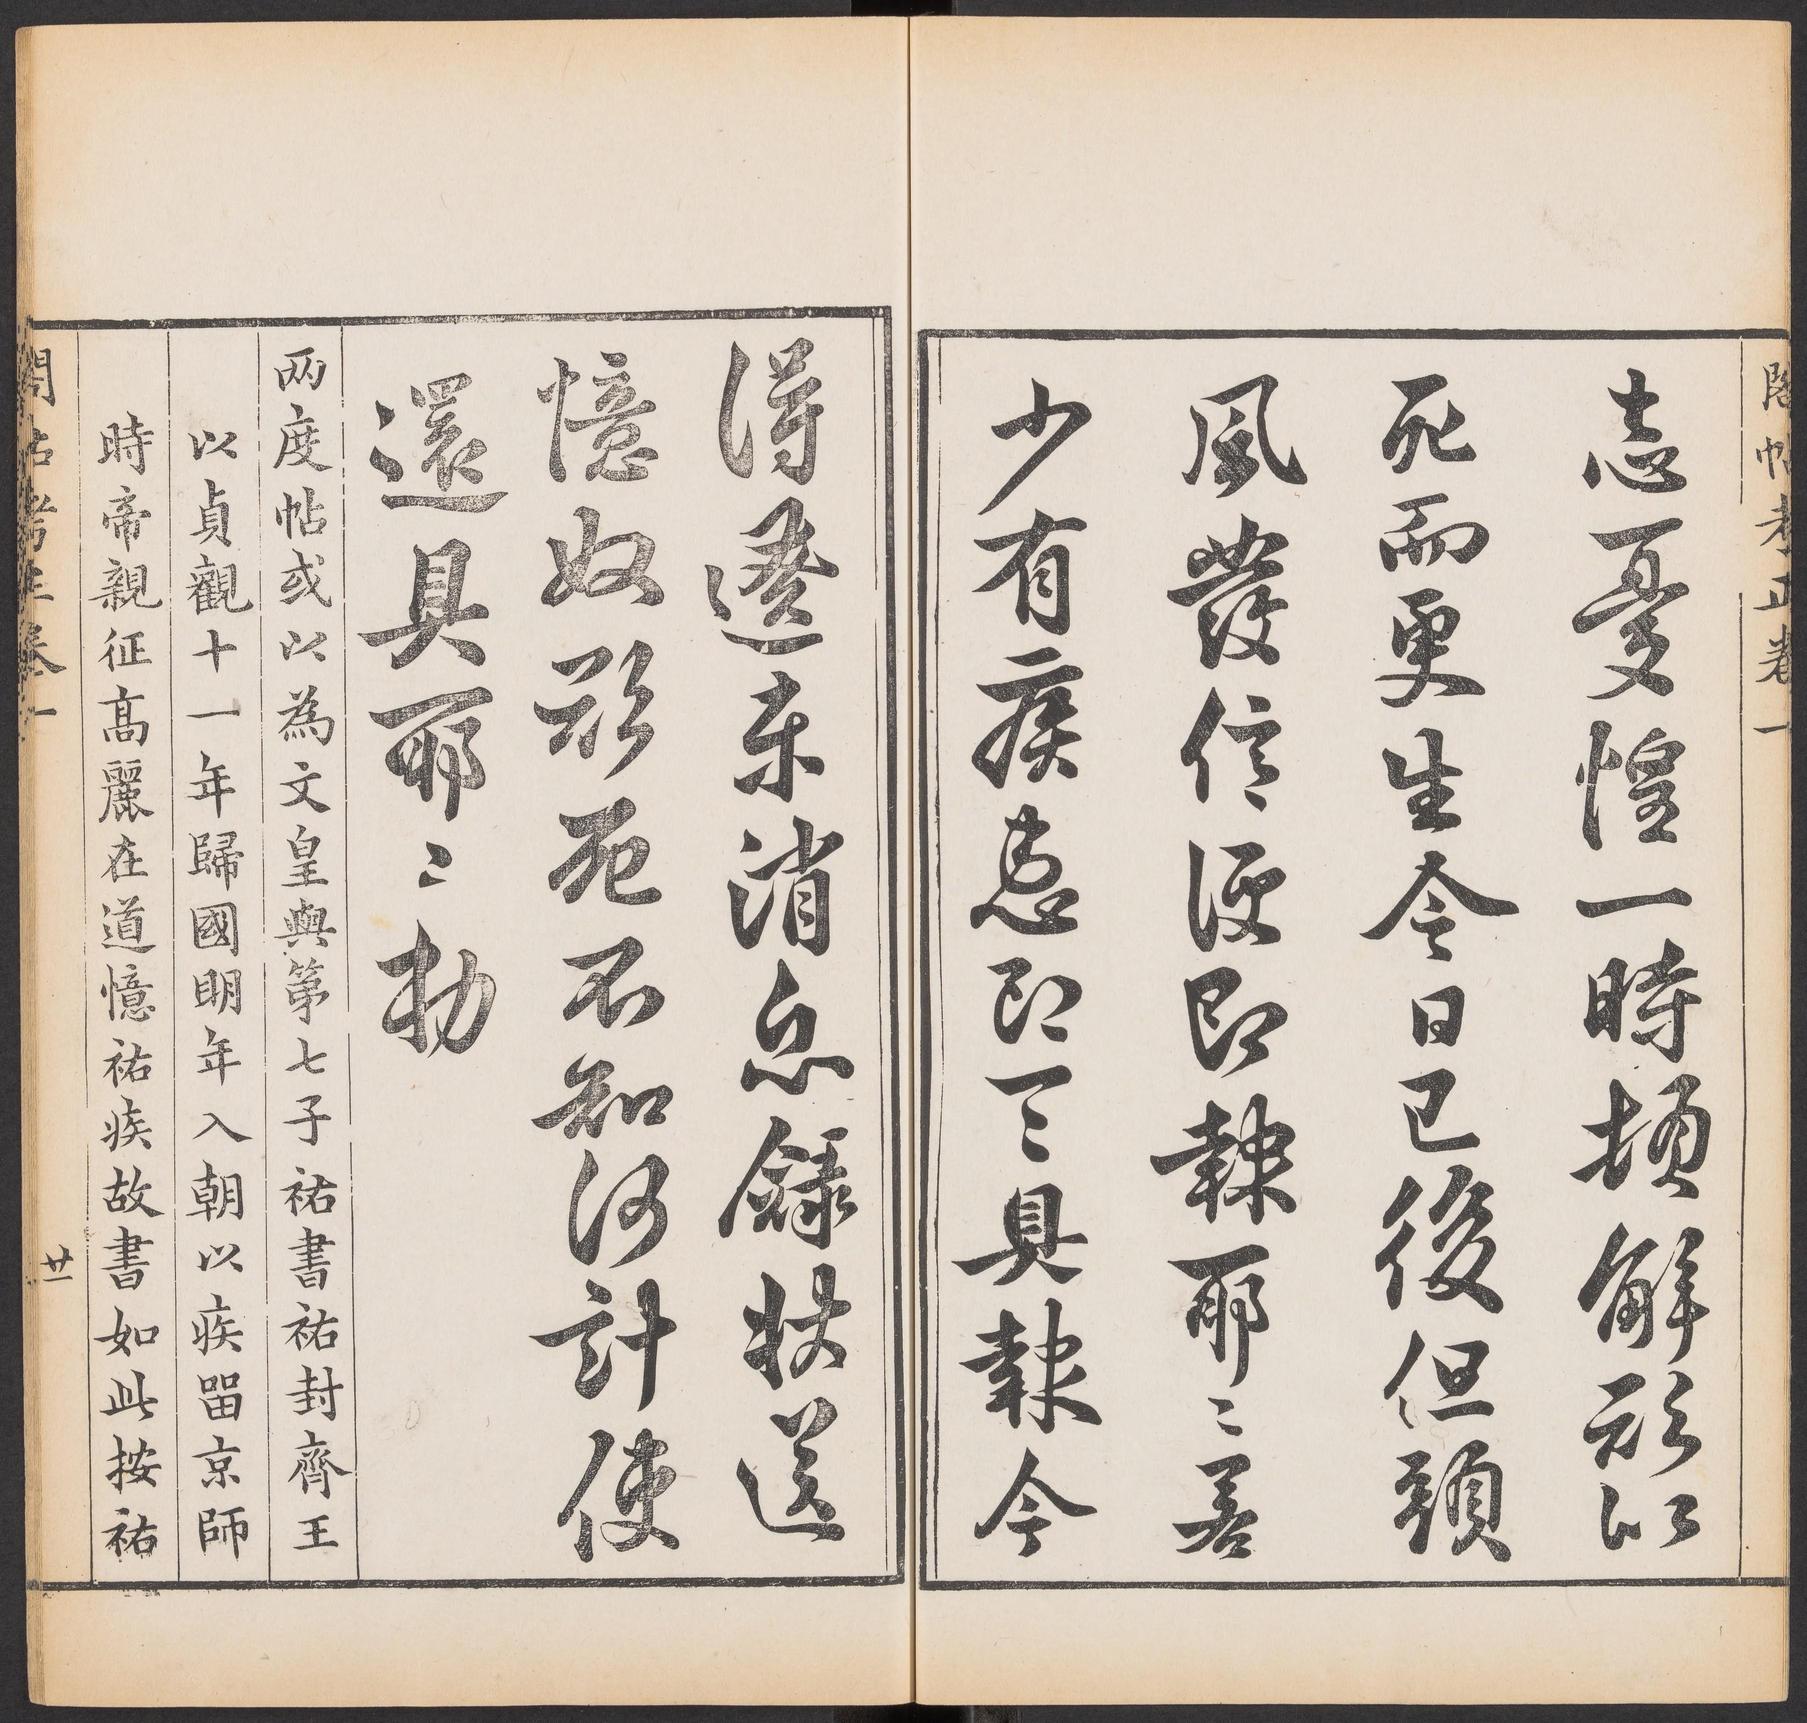 閣帖考正卷一
患憂惶一時頓解欲似
死而更生今日已後但頭
風發信便即報耶〻若
少有疾患即一〻具報今
得遼東消息錄狀送
憶奴欲死不知何計使
還具耶〻勅
兩度帖或以為文皇與第七子祐書祐封齊王
以貞觀十一年歸國明年入朝以疾留京師
時帝親征高麗在道憶祐疾故書如此按祐
閣帖考正卷一
廿一